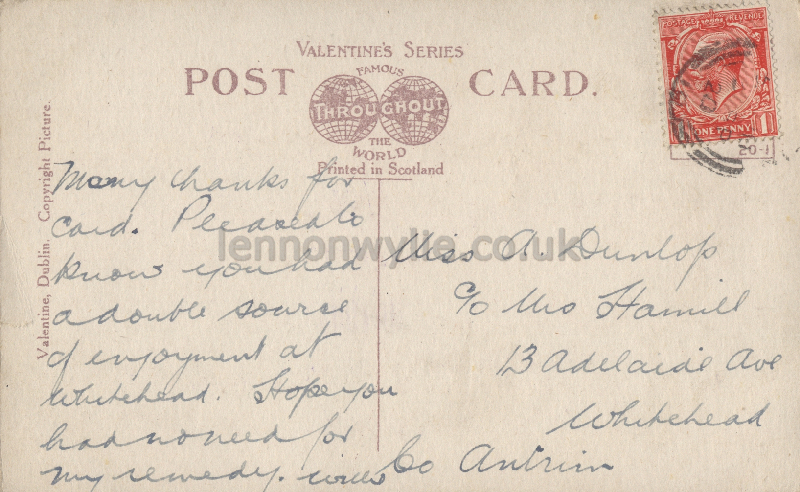 VALENTINE'S SERIES
POST CARD.
FAMOUS
THROUGHOUT
THE
WORLD
Printed in Scotland
POSTAGE REVENUE
ONE PENNY 1
20-1
Valentine, Dublin. Copyright Picture.
Many thanks for
card. Pleased to
know you had
a double source
of enjoyment at
Whitehead. Hope you
had no need for
my remedy.
Miss A. Dunlop
c/o Mrs Hamill
13 Adelaide Ave
Whitehead
Co Antrim
lennonwylie.co.uk